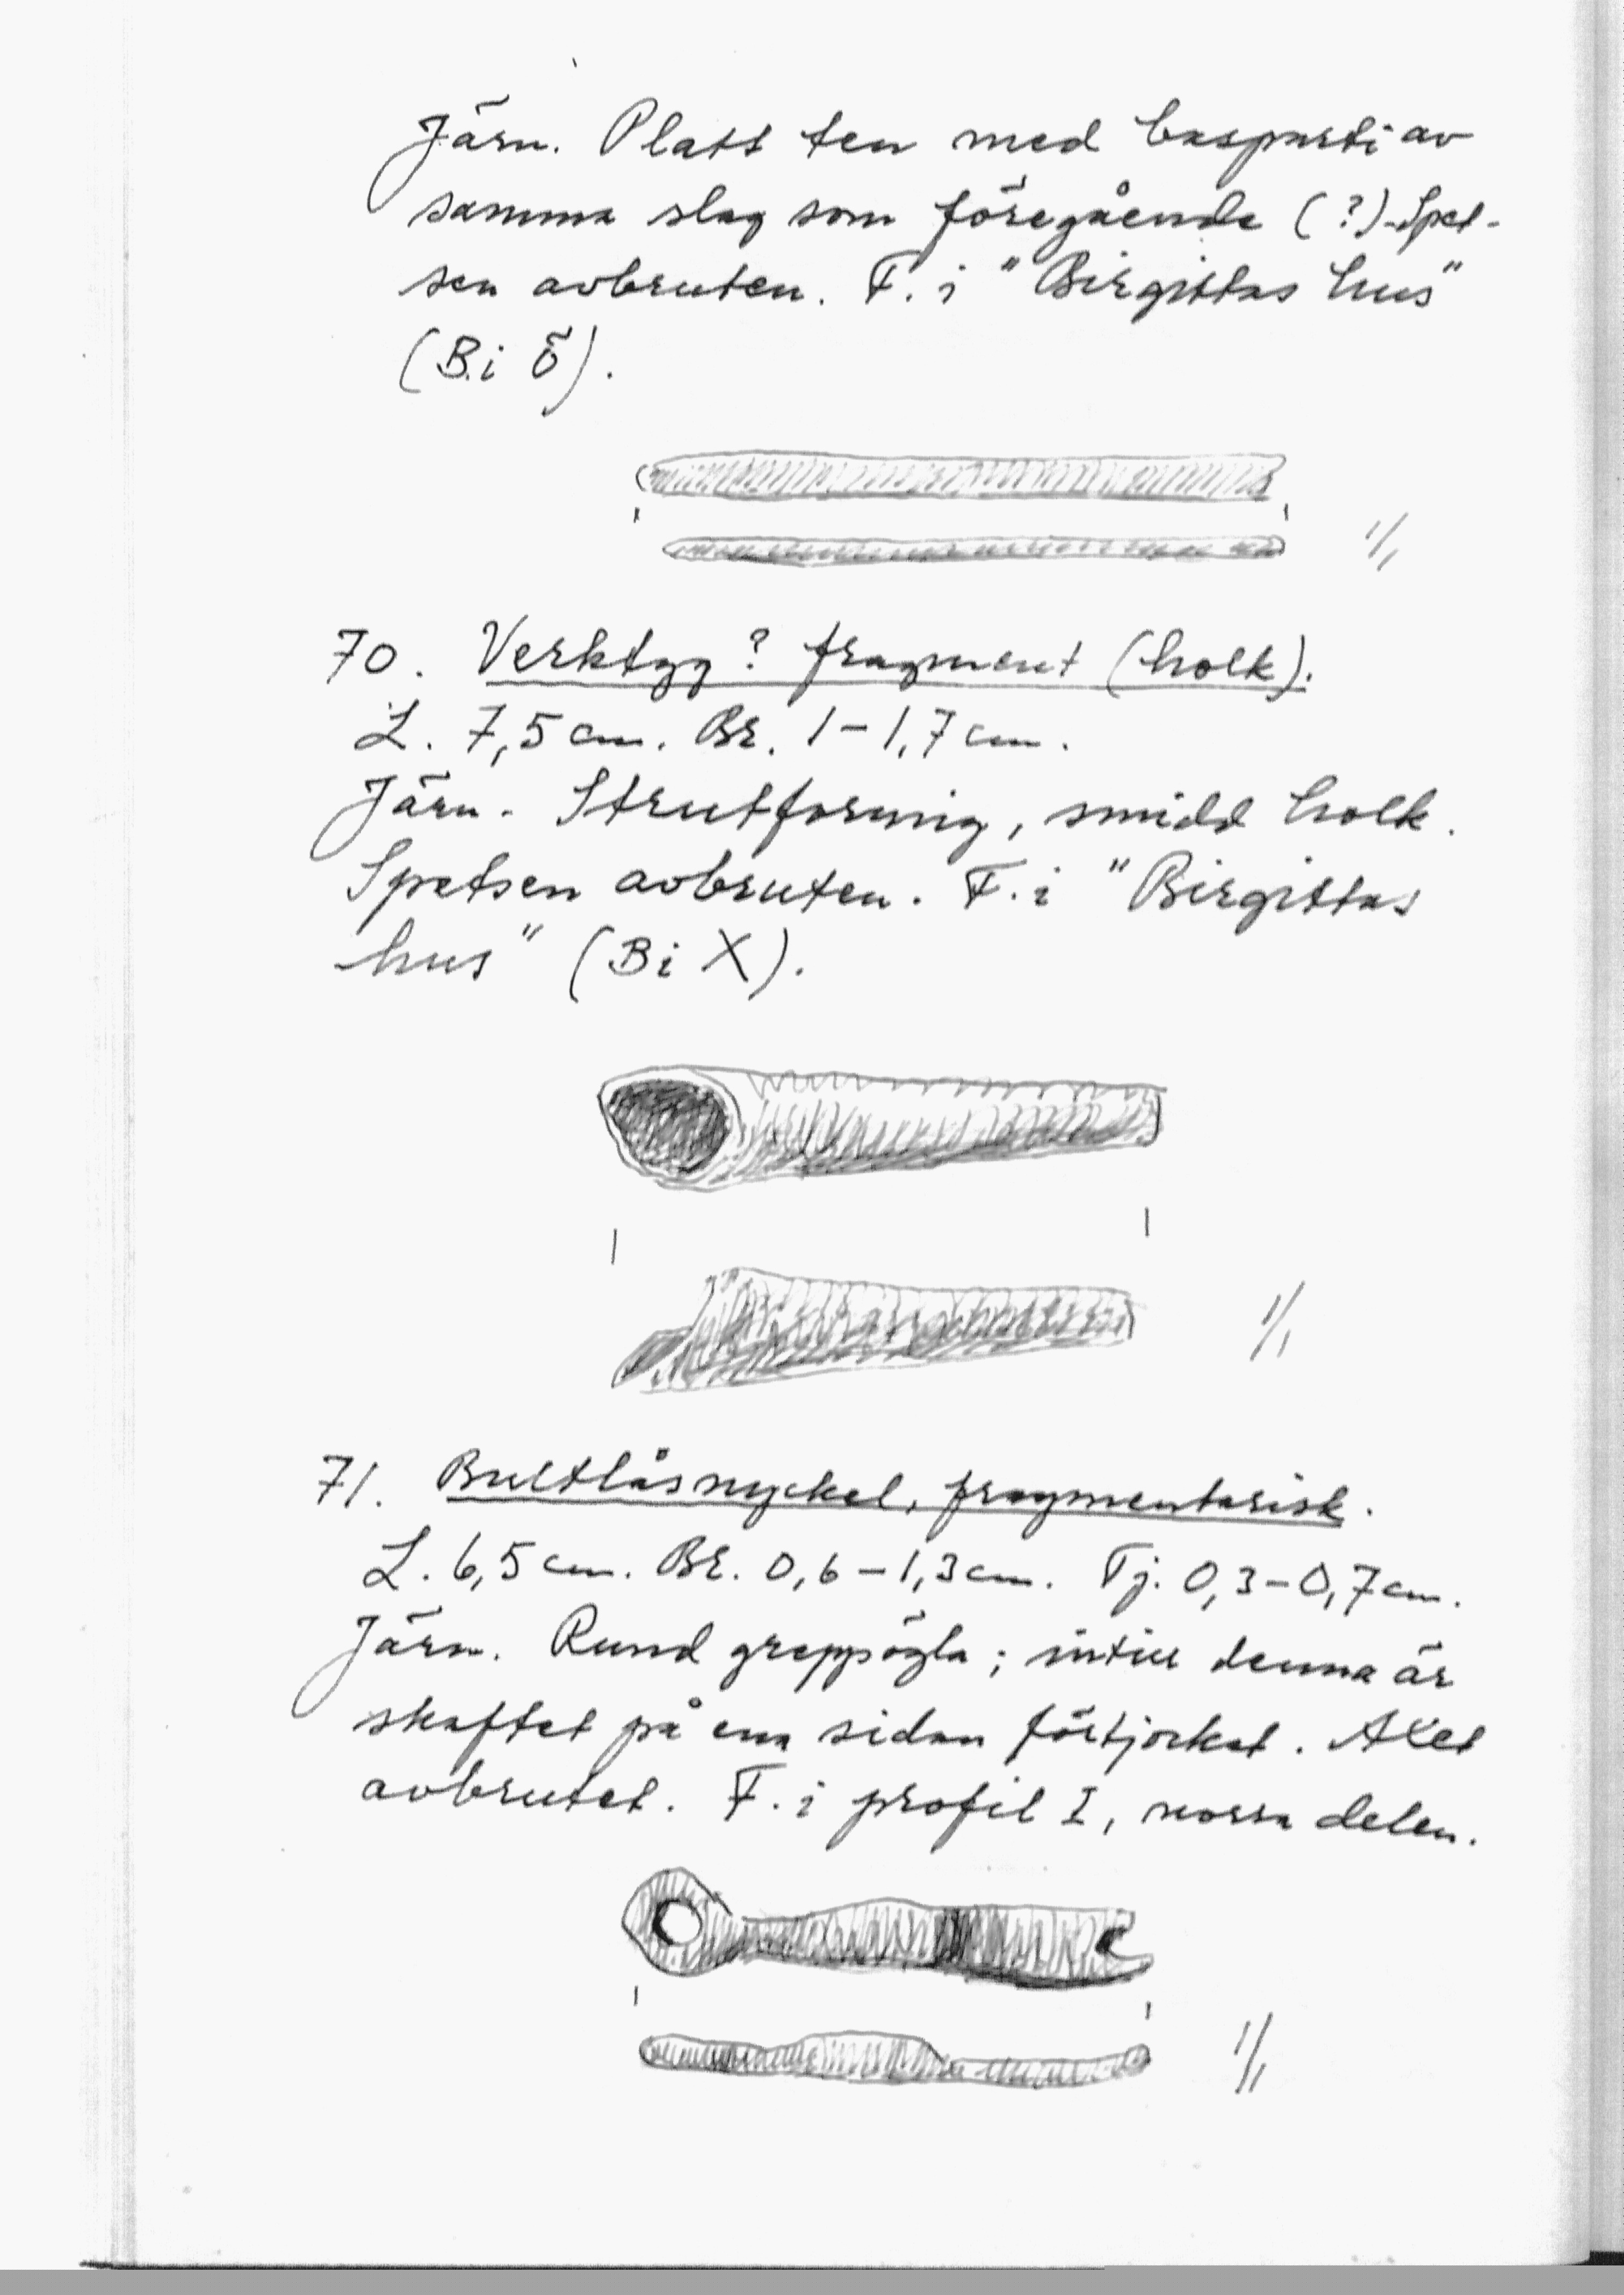 Järn. Platt ten med basparti av
samma slag som föregående (?). Spet-
sen avbruten. F. i "Birgittas hus"
(B.i Ö).
1/1
70. Verktyg? fragment (holk).
L. 7,5 cm. Br. 1-1,7 cm.
Järn. Strutformig, smidd holk.
Spetsen avbruten. F. i "Birgittas
hus" (Bi X).
1/1
71. Bultlåsnyckel, fragmentarisk.
L. 6,5 cm. Br. 0,6-1,3 cm. Tj. 0,3-0,7 cm.
Järn. Rund greppögla; intill denna är
skaftet på ena sidan förtjockat. Axet
avbrutet. F. i profil I, norra delen.
1/1